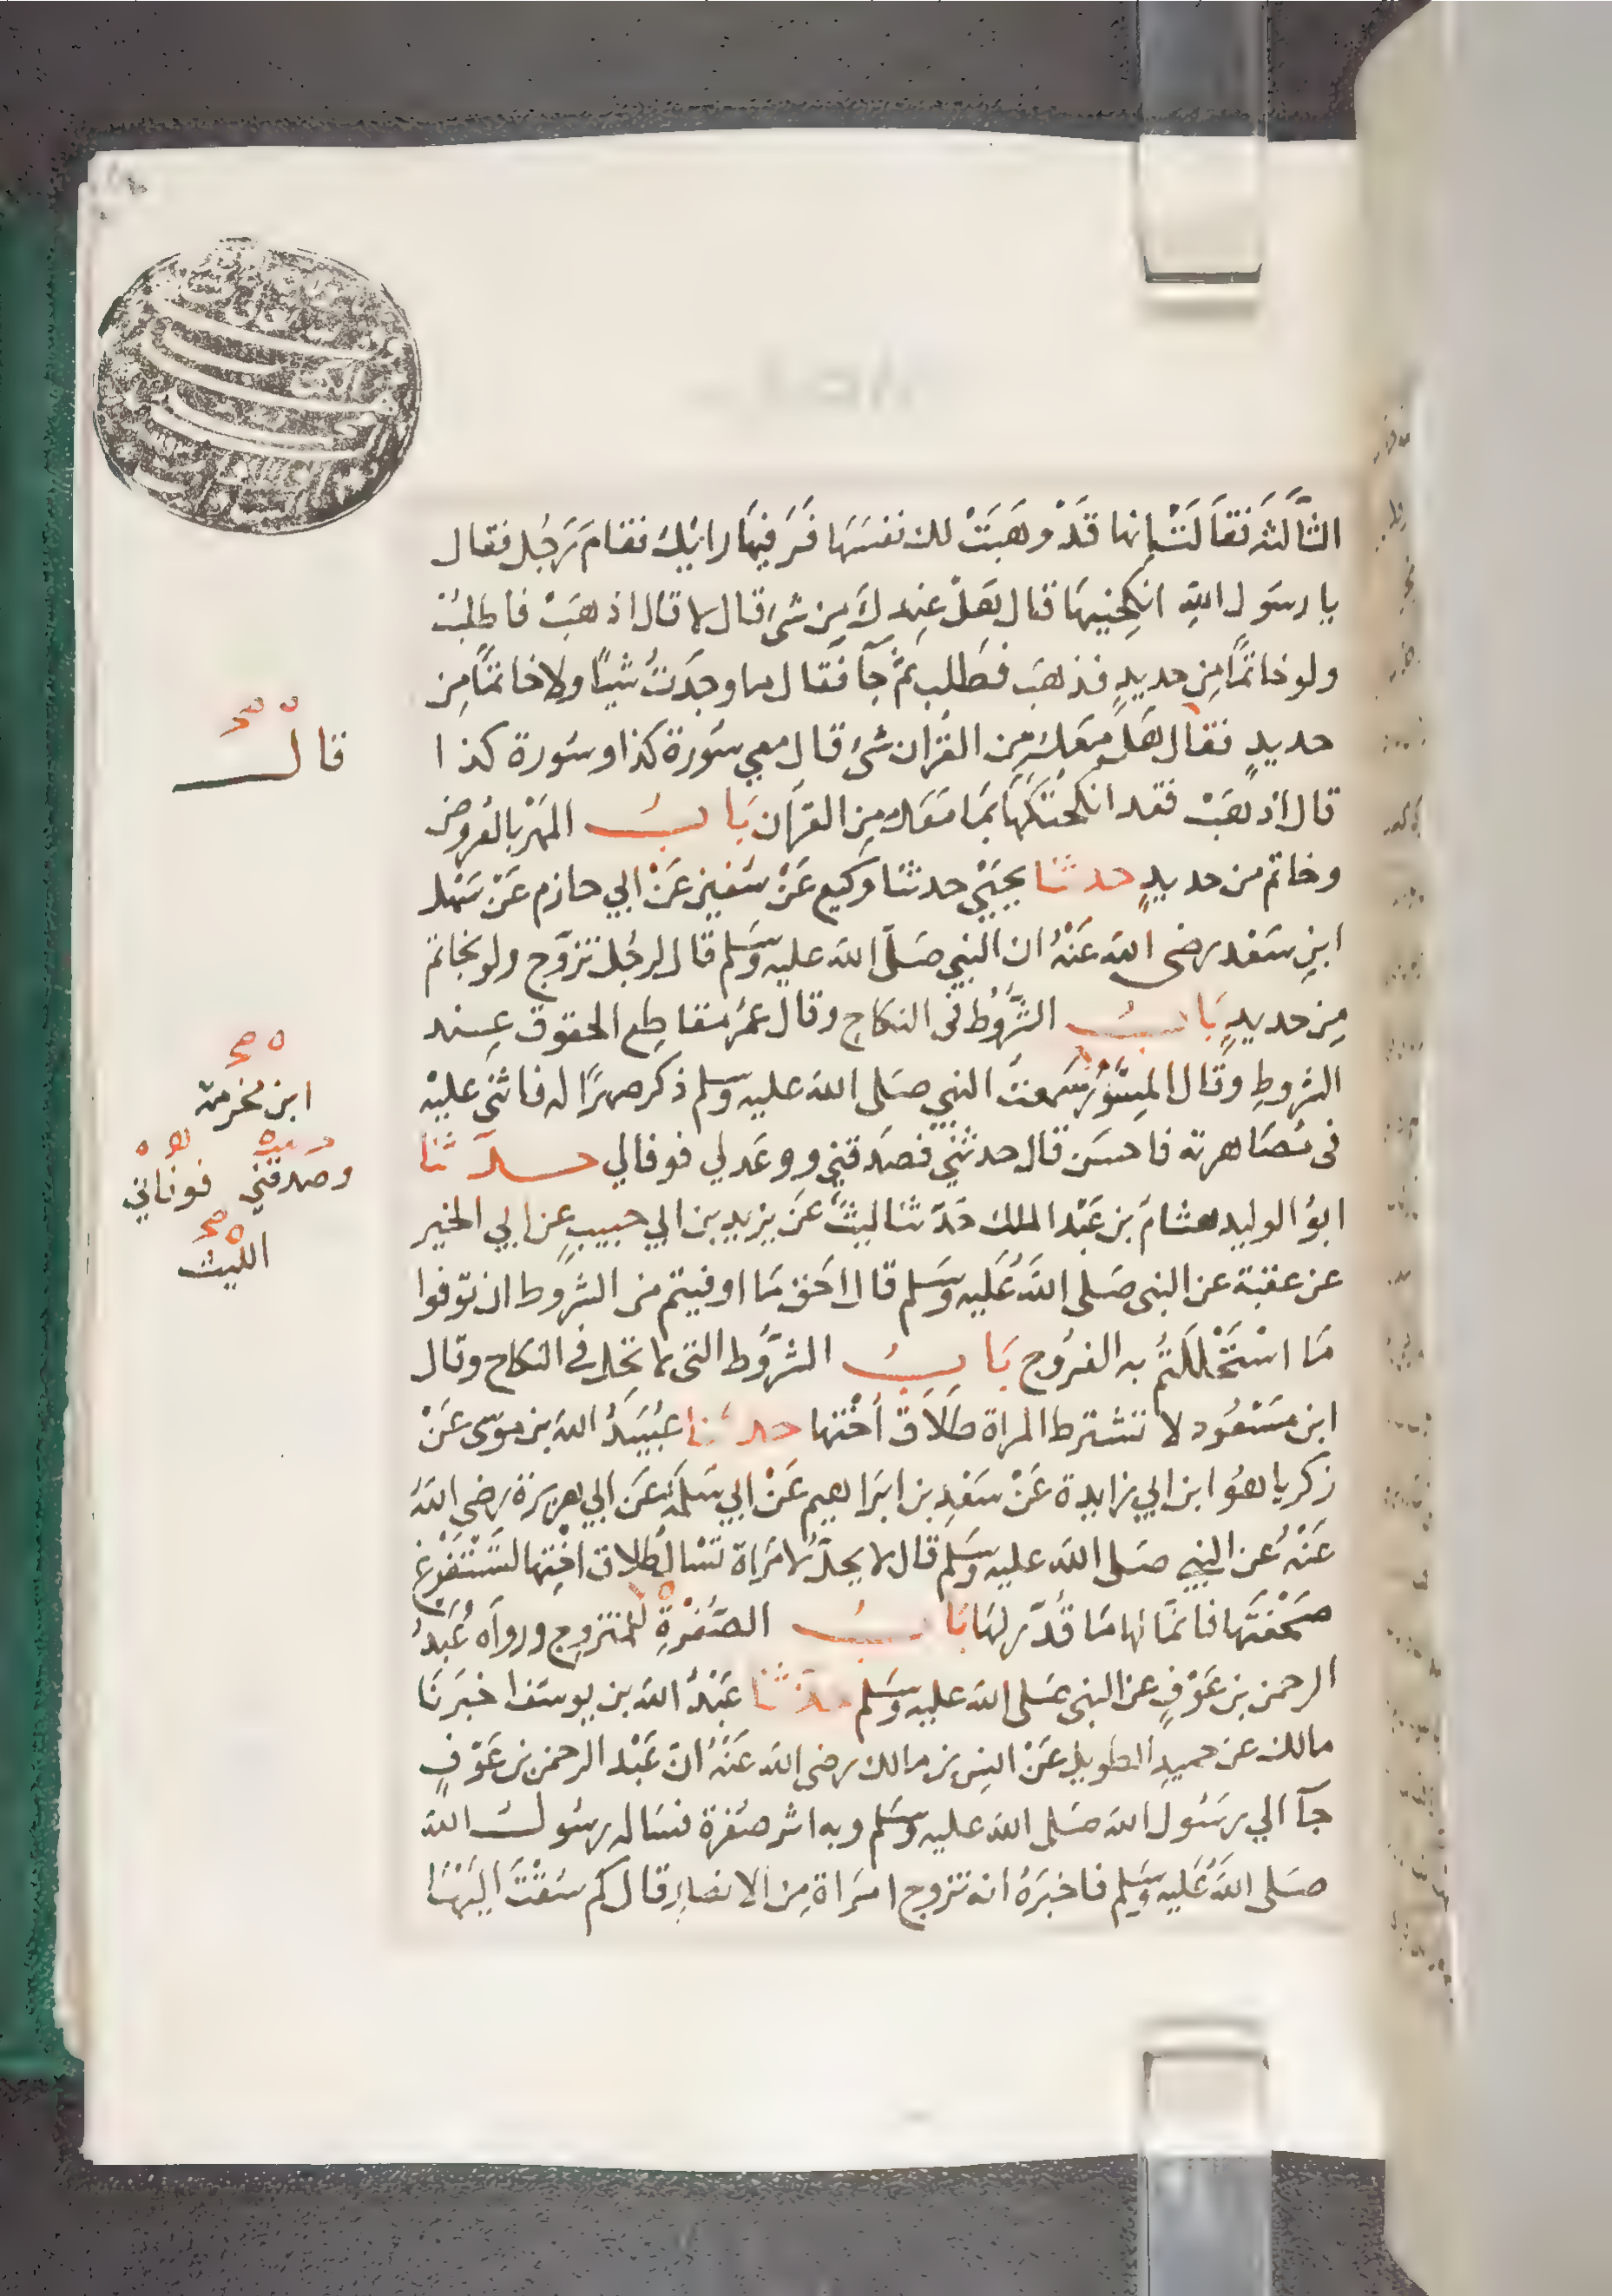 الثَّالثة فَقَالَتْ انها قَدْ وهَبَتْ لك نفسَهَا فَرَ فيهَا رايَك فقامَ رَجُل فقال
يا رسَول اللهِ انكِحْنيهَا قال هَلْ عِندكَ مِن شئ قال لا قال اذهَبْ فاطلبْ
ولو خاتمًا مِن حديدٍ فذهَبَ فطَلب ثمَّ جآ فقال ما وجَدتُ شيًا ولا خاتمًا مِن
حديدٍ فقال هَل معَك مِن القرْان شئ قال معي سُورة كذا وسُورة كذا
قال اذهَبْ فقد انكحتُكهَا بمَا مَعَك مِن القرآن بَابُ المَهْر بالعُروض
وخاتم من حديدٍ حدثنا يحيَى حدثنا وكيع عَنْ سُفين عَنْ ابي حازم عَنْ سَهْل
ابنِ سَعْد رضى الله عَنْهُ ان النبي صَلَّى الله عليه وَسَلم قال لرجُل تزوَّج ولو بخاتم
مِن حديدٍ بَابُ الشُّرُوُط فى النكاح وقال عمَرُ مقاطِع الحقوق عِند
الشروطِ وقال المِسْوَرُ سَمعتُ النبي صَلى الله عليه وسلم ذكر صهرًا له فاثنى عليْه
فى مُصَاهرته فاحسَن قال حدثني فصَدقني ووعَدني فوفالي حدَّثنا
ابوُ الوليد هشامُ بن عَبْد الملك حَدّثنا ليثٌ عَن يزيد بن ابي حبيبٍ عن ابي الخير
عن عقبة عن النبى صَلى اللهُ عَليه وَسَلم قال احَق مَا اوفيتم من الشرُوط ان توفوا
مَا اسْتَحْلَلتُم به الفرُوج بَابُ الشرُّوط التى لا تحل في النكاح وقال
ابن مسَعُود لا تشترط المراة طَلَاق اُخْتها حدثنا عُبَيدُ الله بن موسَى عَنْ
زكريا هوُ ابن ابي زايدة عَنْ سَعْدِ بن ابرَاهيم عَنْ ابي سَلمَة عَن ابي هريرَة رضِي اللهُ
عَنْهُ عن النبي صَلى الله عليه وَسَلم قال لا يحلّ لامرَاة تسْال طَلاق اخْتِها لتَسْتَفْرِغ
صَحْفتَها فانمَا لها مَا قُدّر لهَا بَابُ الصُّفْرةِ للمتزوِج ورواه عَبْدُ
الرحمن بن عَوْفٍ عن النبى صَلى الله عليه وَسَلم حدَّثنا عَبْدُ الله بن يوسَف اخبرَنَا
مالك عن حميدٍ الطويل عَنْ انسِ بن مالك رضى الله عَنْهُ انّ عَبْد الرحمن بن عَوْفٍ
جآ الي رسُول الله صَلى الله عليه وَسَلم وبه اثر صُفرة فسَاله رسُول الله
صَلى اللهُ عَليه وَسَلم فاخبرَهُ انه تزوج امرَاة مِن الانصارِ قال كم سُقْتَ اليْهَا
قالـ
ه صح
ابن مخرمة
وصدقني فوفاني
ه صح
الليث